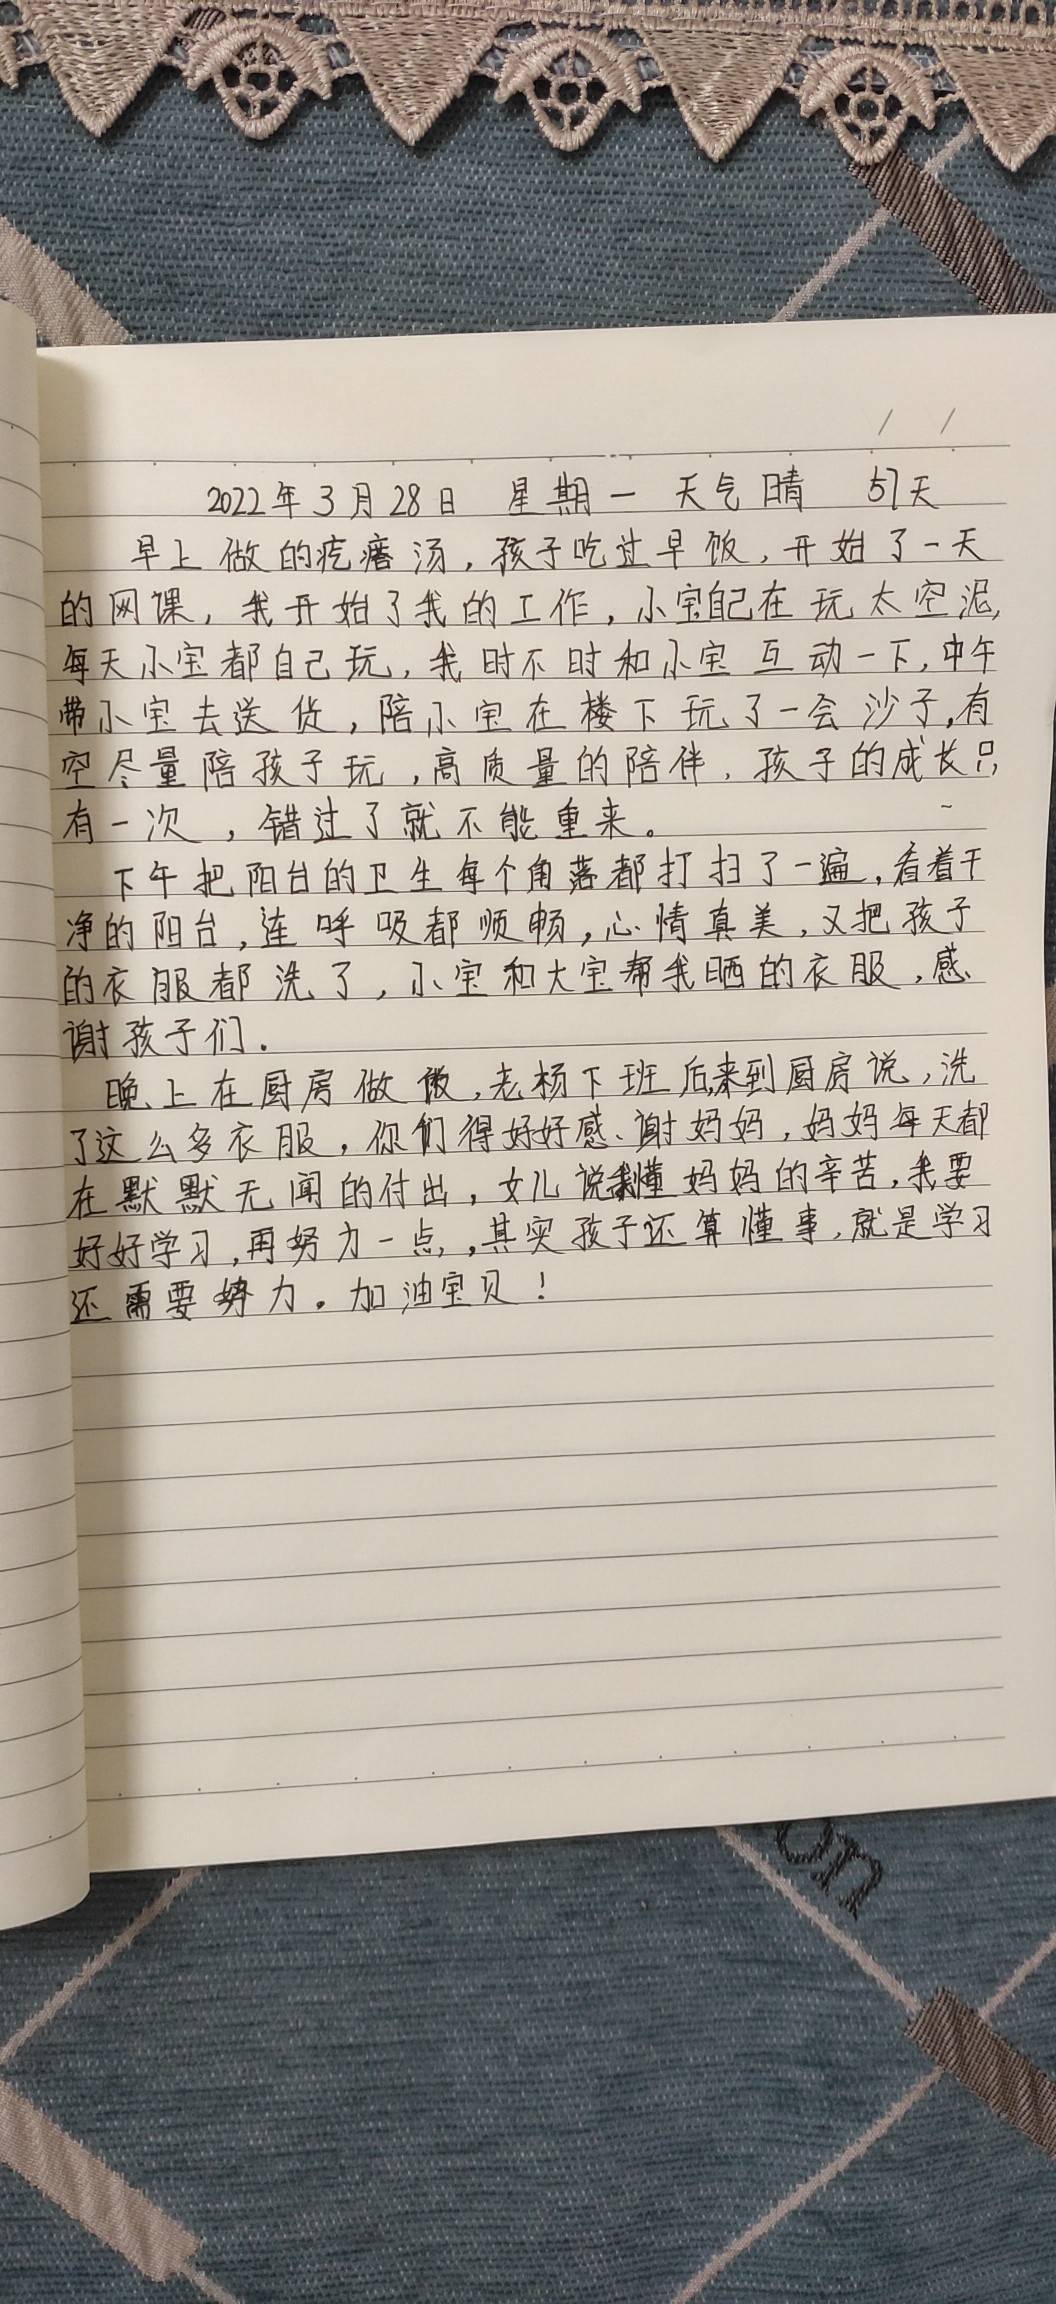 2022年3月28日 星期一 天气晴 57天
早上做的疙瘩汤,孩子吃过早饭,开始了一天
的网课,我开始了我的工作,小宝自己在玩太空泥,
每天小宝都自己玩,我时不时和小宝互动一下,中午
带小宝去送货,陪小宝在楼下玩了一会沙子,有
空尽量陪孩子玩,高质量的陪伴,孩子的成长只
有一次,错过了就不能重来。
下午把阳台的卫生每个角落都打扫了一遍,看着干
净的阳台,连呼吸都顺畅,心情真美,又把孩子
的衣服都洗了,小宝和大宝帮我晒的衣服,感
谢孩子们.
晚上在厨房做饭,老杨下班后,来到厨房说,洗
了这么多衣服,你们得好好感谢妈妈,妈妈每天都
在默默无闻的付出,女儿说我懂妈妈的辛苦,我要
好好学习,再努力一点,其实孩子还算懂事,就是学习
还需要努力。加油宝贝!
on